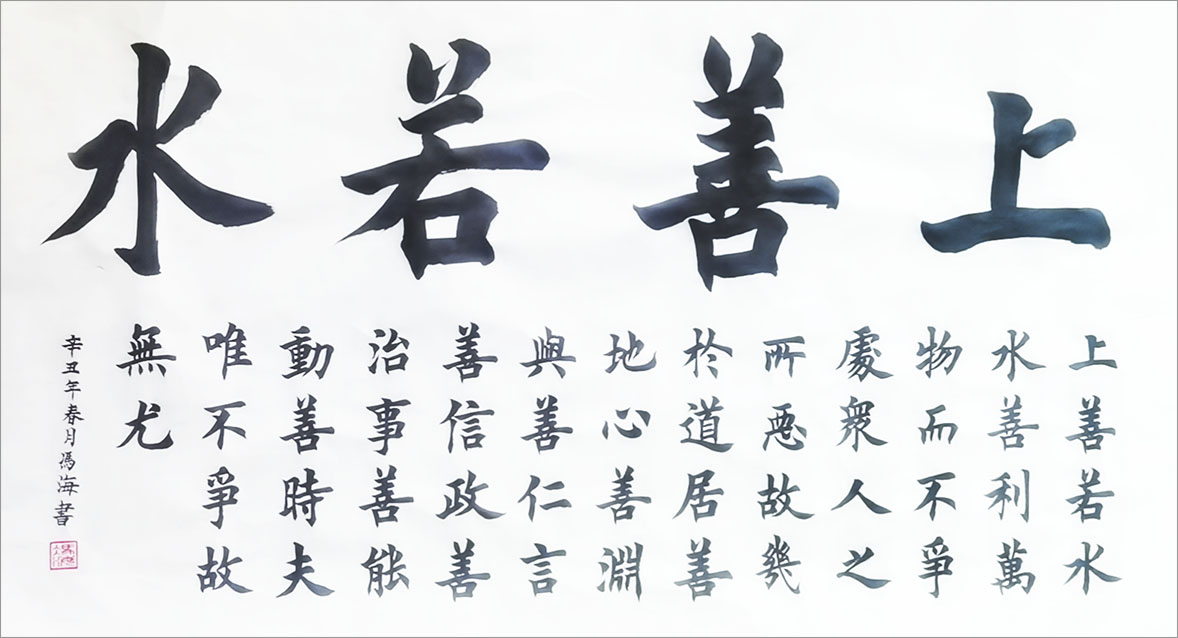 上善若水
上善若水
水善利萬
物而不爭
處衆人之
所惡故幾
於道居善
地心善淵
與善仁言
善信政善
治事善能
動善時夫
唯不爭故
無尤
辛丑年春月馮海書